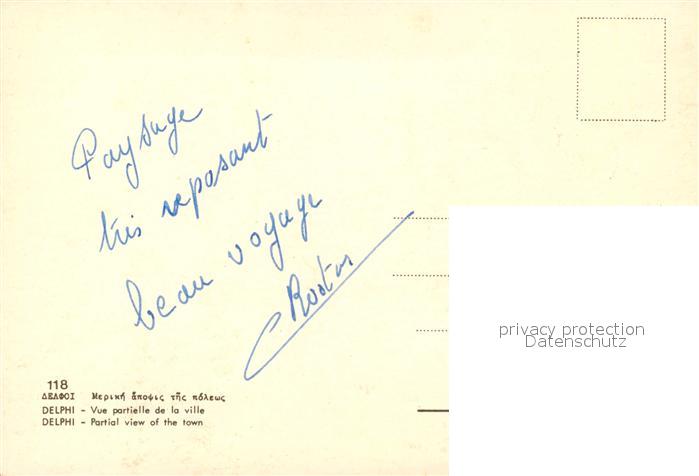 Paysage
très reposant
beau voyage
privacy protection
Datenschutz
118
ΔΕΛΦΟΙ Μερική ἄποψις τῆς πόλεως
DELPHI - Vue partielle de la ville
DELPHI - Partial view of the town